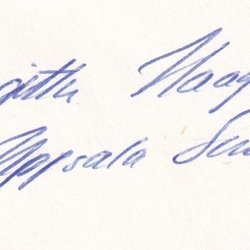 gitta Haag
Uppsala Su